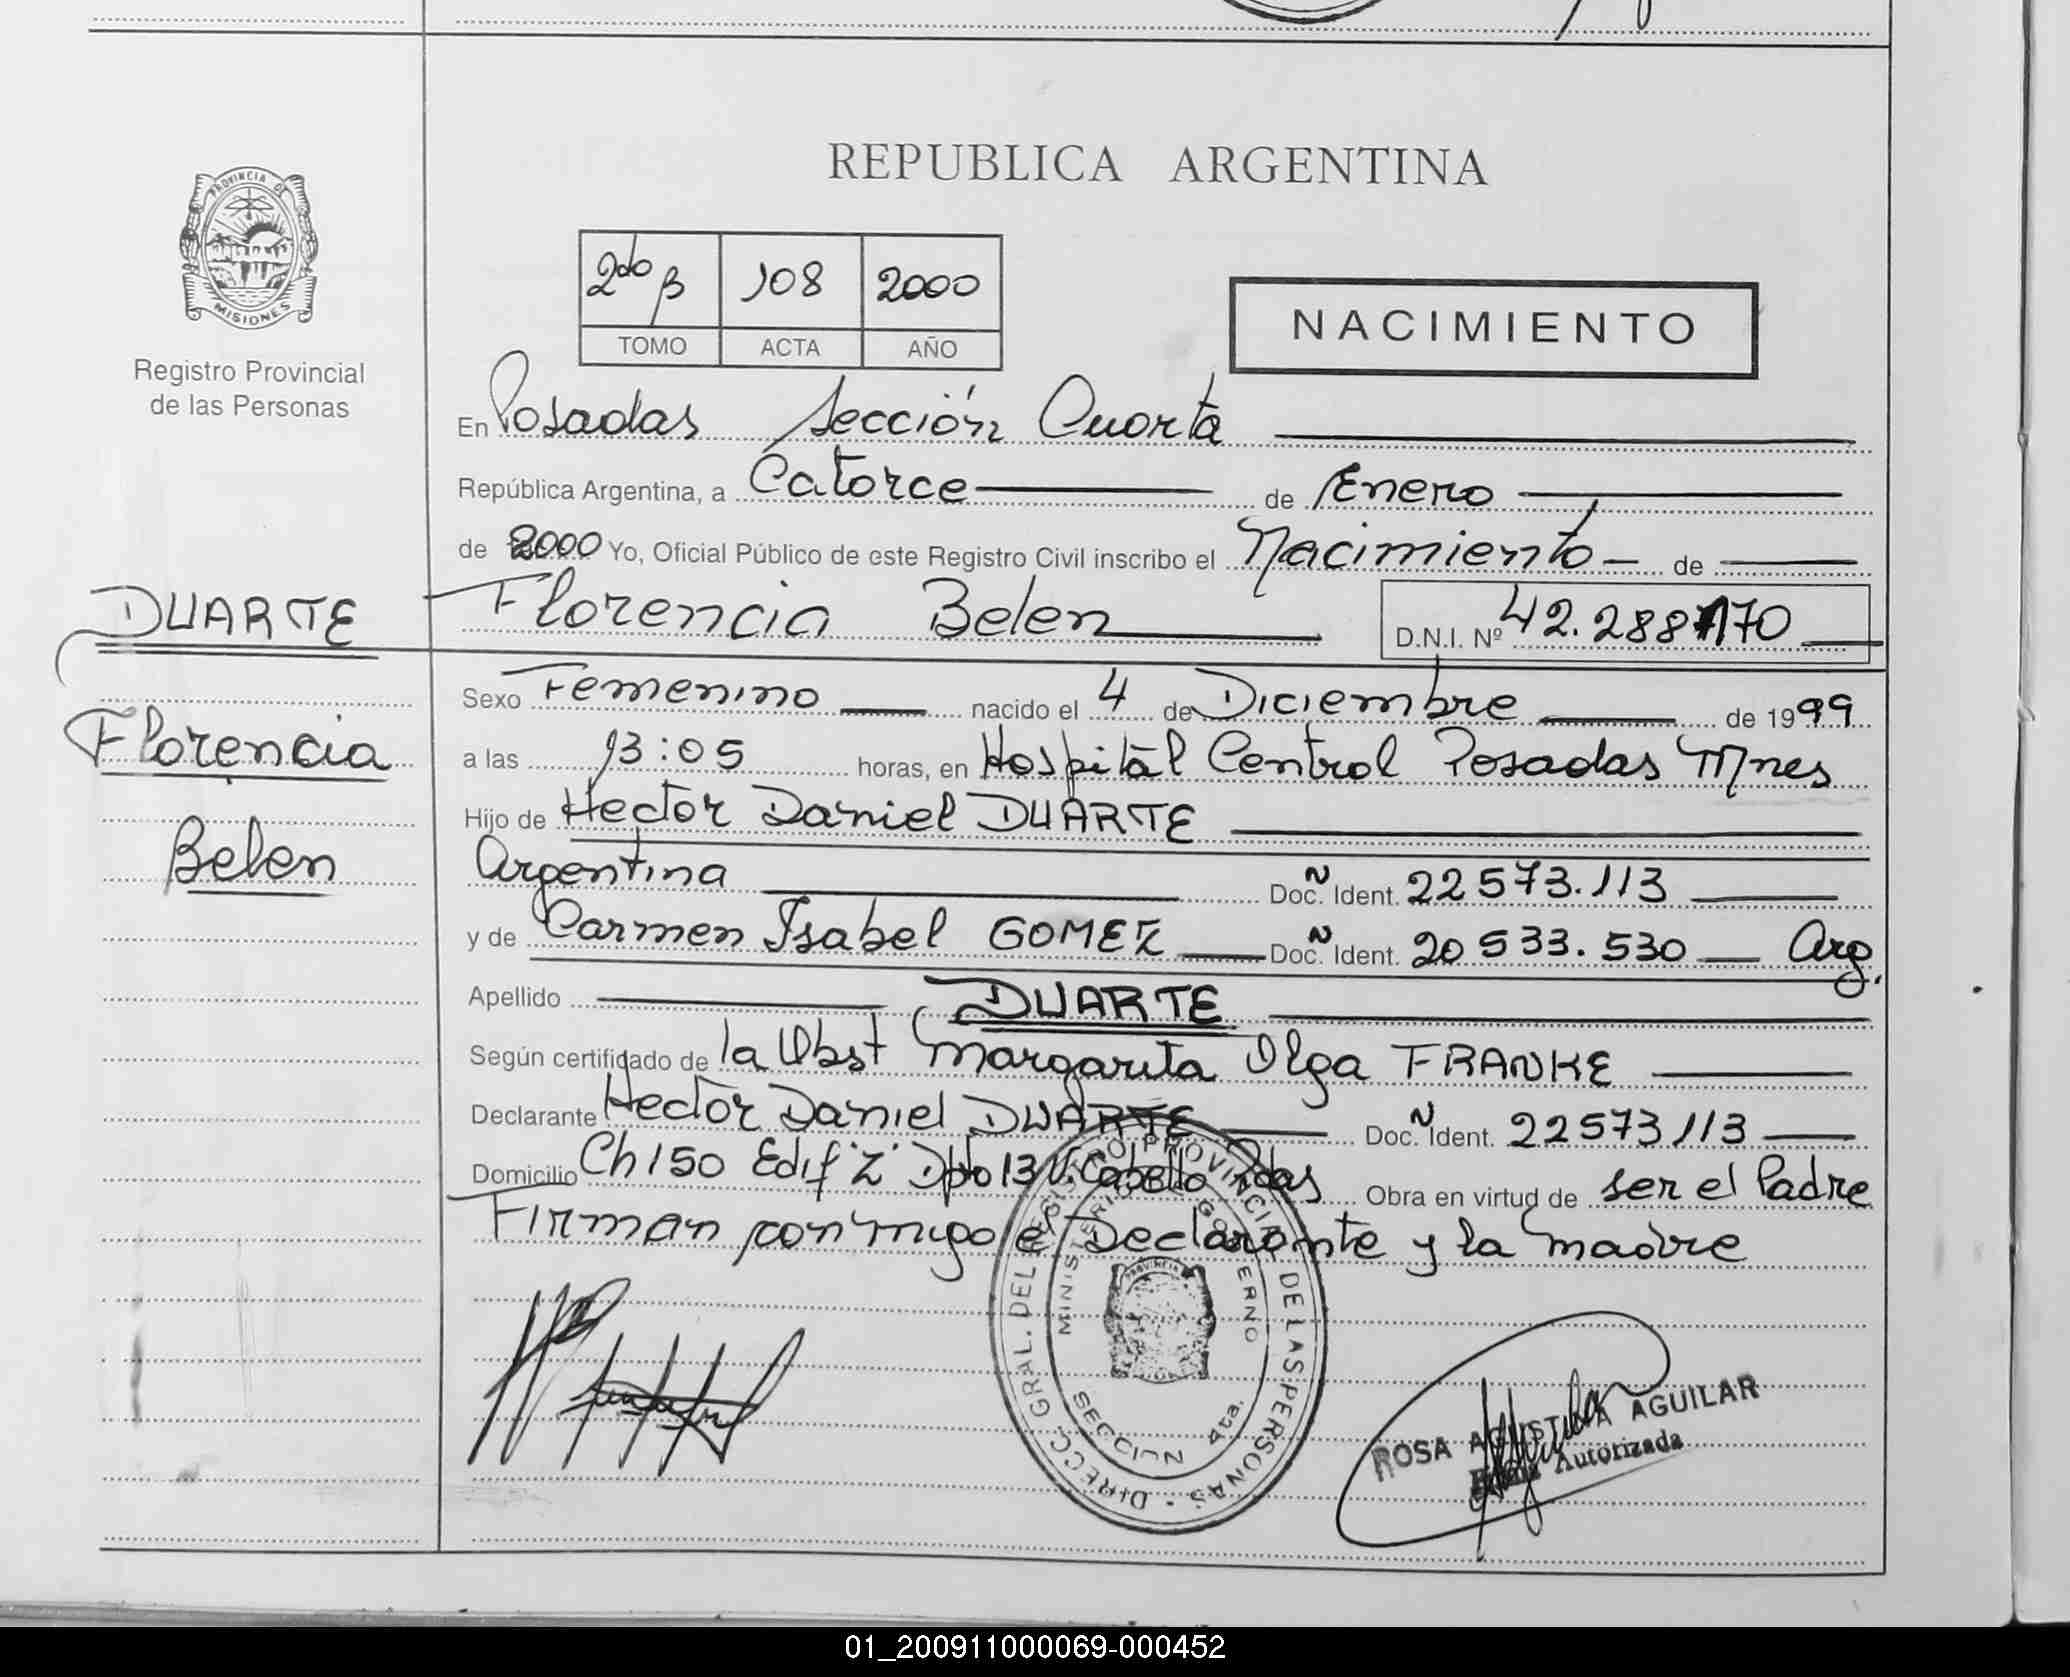 REPUBLICA ARGENTINA
PROVINCIA DE
MISIONES
Registro Provincial
de las Personas
2do B 108 2000
TOMO ACTA AÑO
NACIMIENTO
En Posadas Sección Cuarta
República Argentina, a Catorce de Enero
de 2000 Yo, Oficial Público de este Registro Civil inscribo el Nacimiento de
Florencia Belen D.N.I. Nº 42.288.170
DUARTE
Florencia
Belen
Sexo Femenino nacido el 4 de Diciembre de 1999
a las 13:05 horas, en Hospital Central Posadas Mnes
Hijo de Hector Daniel DUARTE
Argentina Doc. Ident. 22573.113
y de Carmen Isabel GOMEZ Doc. Ident. 20533.530 Arg.
Apellido DUARTE
Según certificado de la Obst Margarita Olga FRANKE
Declarante Hector Daniel DUARTE Doc. Ident. 22573113
Domicilio Ch 150 Edif "Z" Dpto 13 V. Cabello Pdas Obra en virtud de ser el Padre
Firman conmigo el Declarante y la madre
DIRECC. GRAL. DEL REGISTRO PROVINCIAL DE LAS PERSONAS
MINISTERIO DE GOBIERNO
PROVINCIA
SECCION 4ta.
ROSA AGUSTINA AGUILAR
Firma Autorizada
01_200911000069-000452